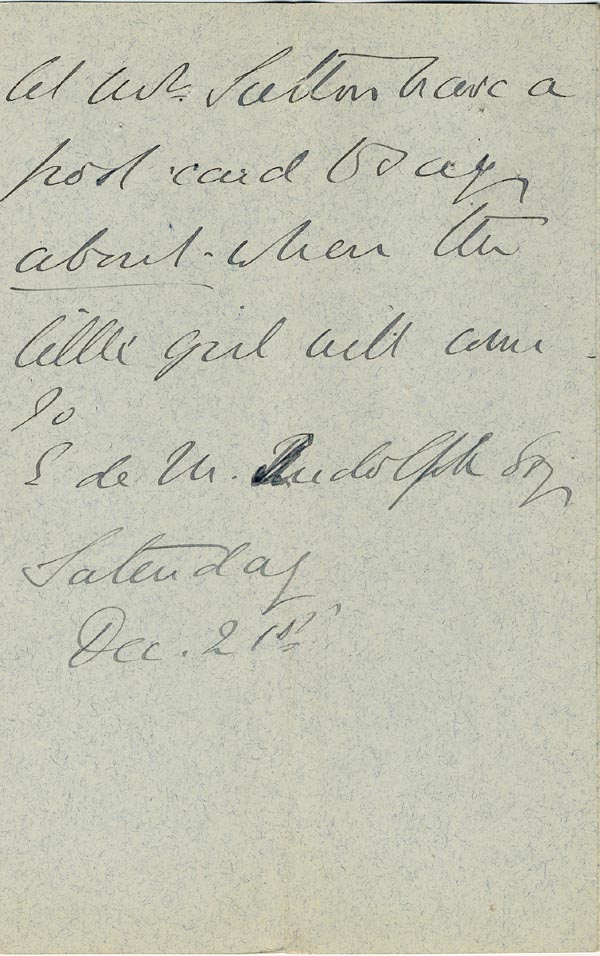 let Mrs. Sutton have a
post-card to say
about when the
little girl will come -
To
E de M. Rudolph Esq,
Saturday
Dec. 21st